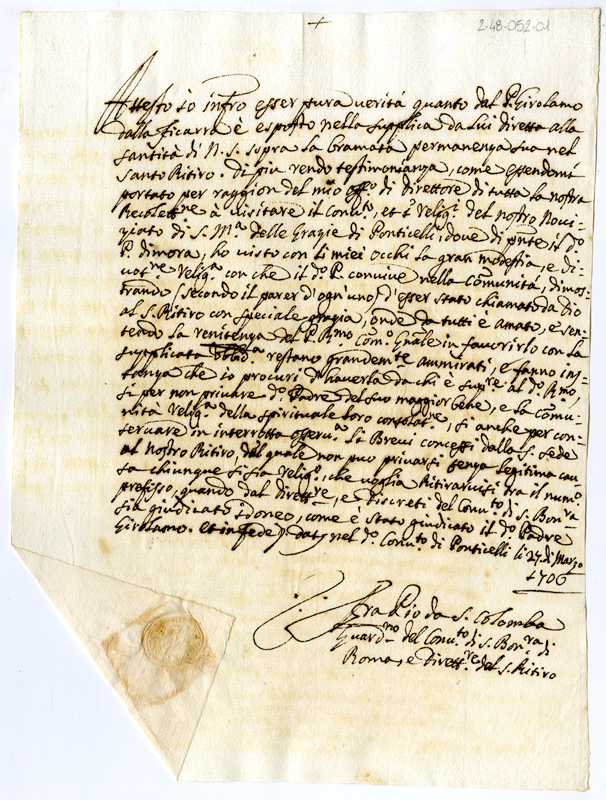 +
2-48-052-01
Attesto io infro esser pura verità quanto dal P. Girolamo
dalla Ficarra è esposto nella supplica da lui diretta alla
santità di N. S. sopra la bramata permanenza sua nel
santo Ritiro. Di più rendo testimonianza, come essendomi
portato per raggion del mio offo di Direttore di tutta la nostra
Recolettne à visitare il Convto, et i Religi del nostro Novi-
ziato di S. Ma delle Grazie di Ponticelli, dove di pnte il do
P. dimora, ho visto con li miei occhi la gran modestia, e di-
votne Religa con che il do P. convive nella Comunità, dimos-
trando (secondo il parer d'ogn'uno) d'esser stato chiamato da Dio
al S. Ritiro con speciale grazia, onde da tutti è amato, e sen-
tendo la renitenza del P. Rmo Como Gnale in favorirlo con la
supplicata restano grandemte ammirati, e fanno ins-
tanza che io procuri d'haverla da chi è supre al do Rmo,
si per non privare do Padre del suo maggior bene, e la Comu-
nità Religa della spirituale loro consolatne, si anche per con-
servare in interrotta osserva li Brevi concessi dalla S. Sede
al nostro Ritiro, dal quale non può privarsi senza legitima cau
sa chiunque si sia Religo, che voglia Ritirarvisi tra il numo
prefisso, quando dal Direttre, e Discreti del Convto di S. Bonra
sia giudicato idoneo, come è stato giudicato il do Padre
Girolamo. et in fede dat nel do Convto di Ponticelli li 27 di Marzo
1706
Fra Pio da S. Colomba
Guardno del Convto di S. Bonra di
Roma, e Direttre del S. Ritiro